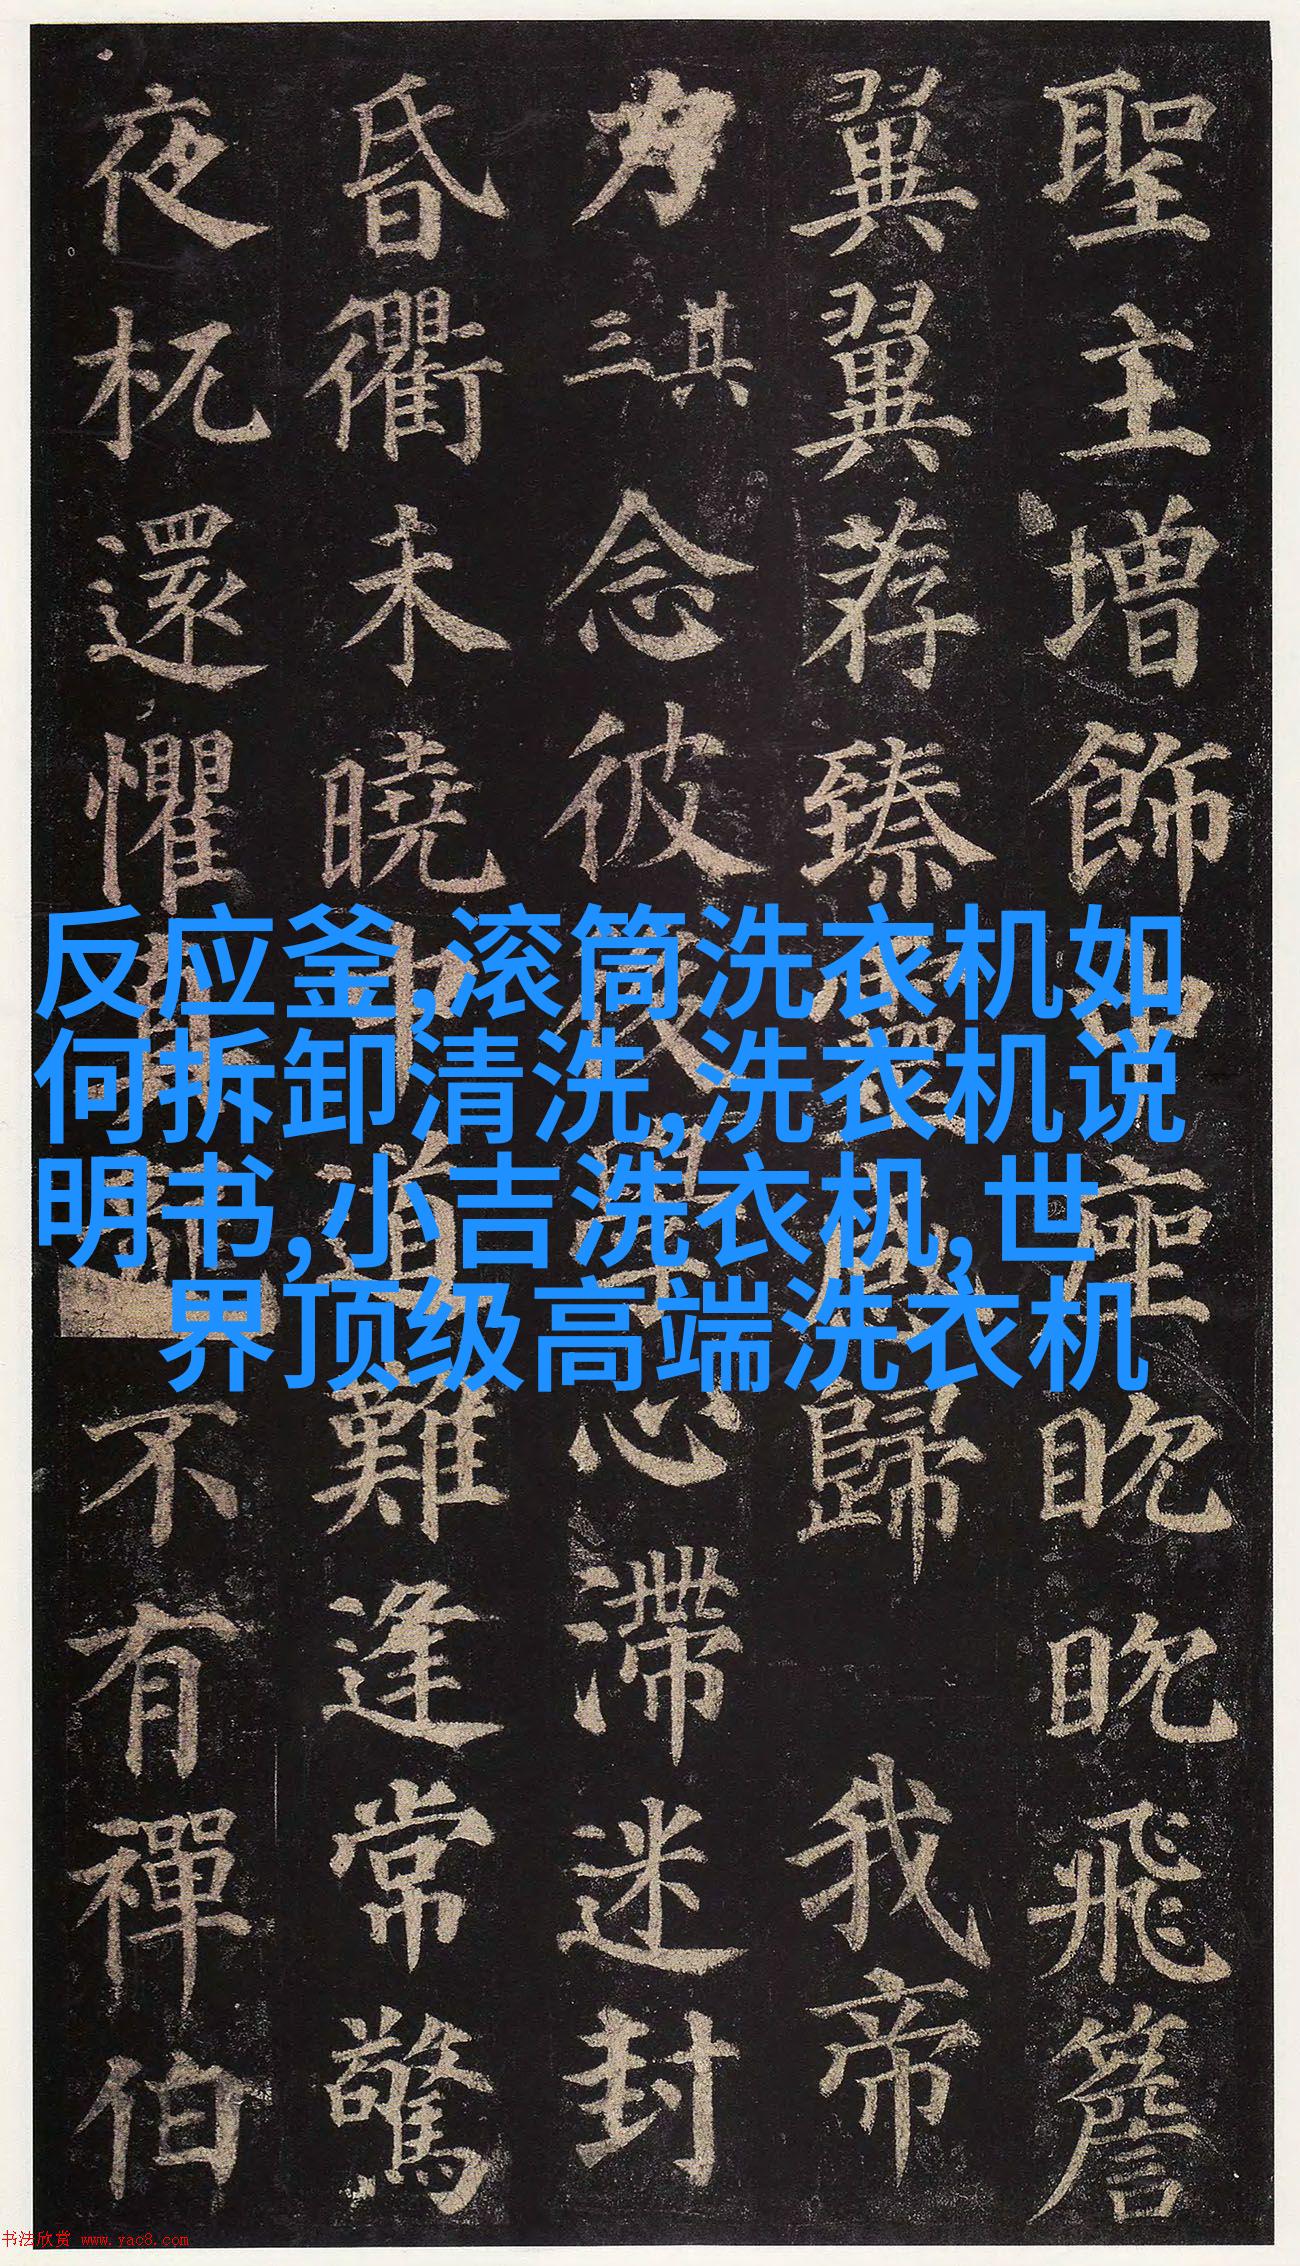 聖主增飾中座眈眈飛簷
翼翼荐臻靈感歸我帝
力其三念彼後學心滯迷封
昏衢未曉中道難逢常驚
夜杌還懼真龍不有禪伯
反应釜,滚筒洗衣机如
何拆卸清洗,洗衣机说
明书,小吉洗衣机,世
界顶级高端洗衣机
书法欣赏 www.yac8.com